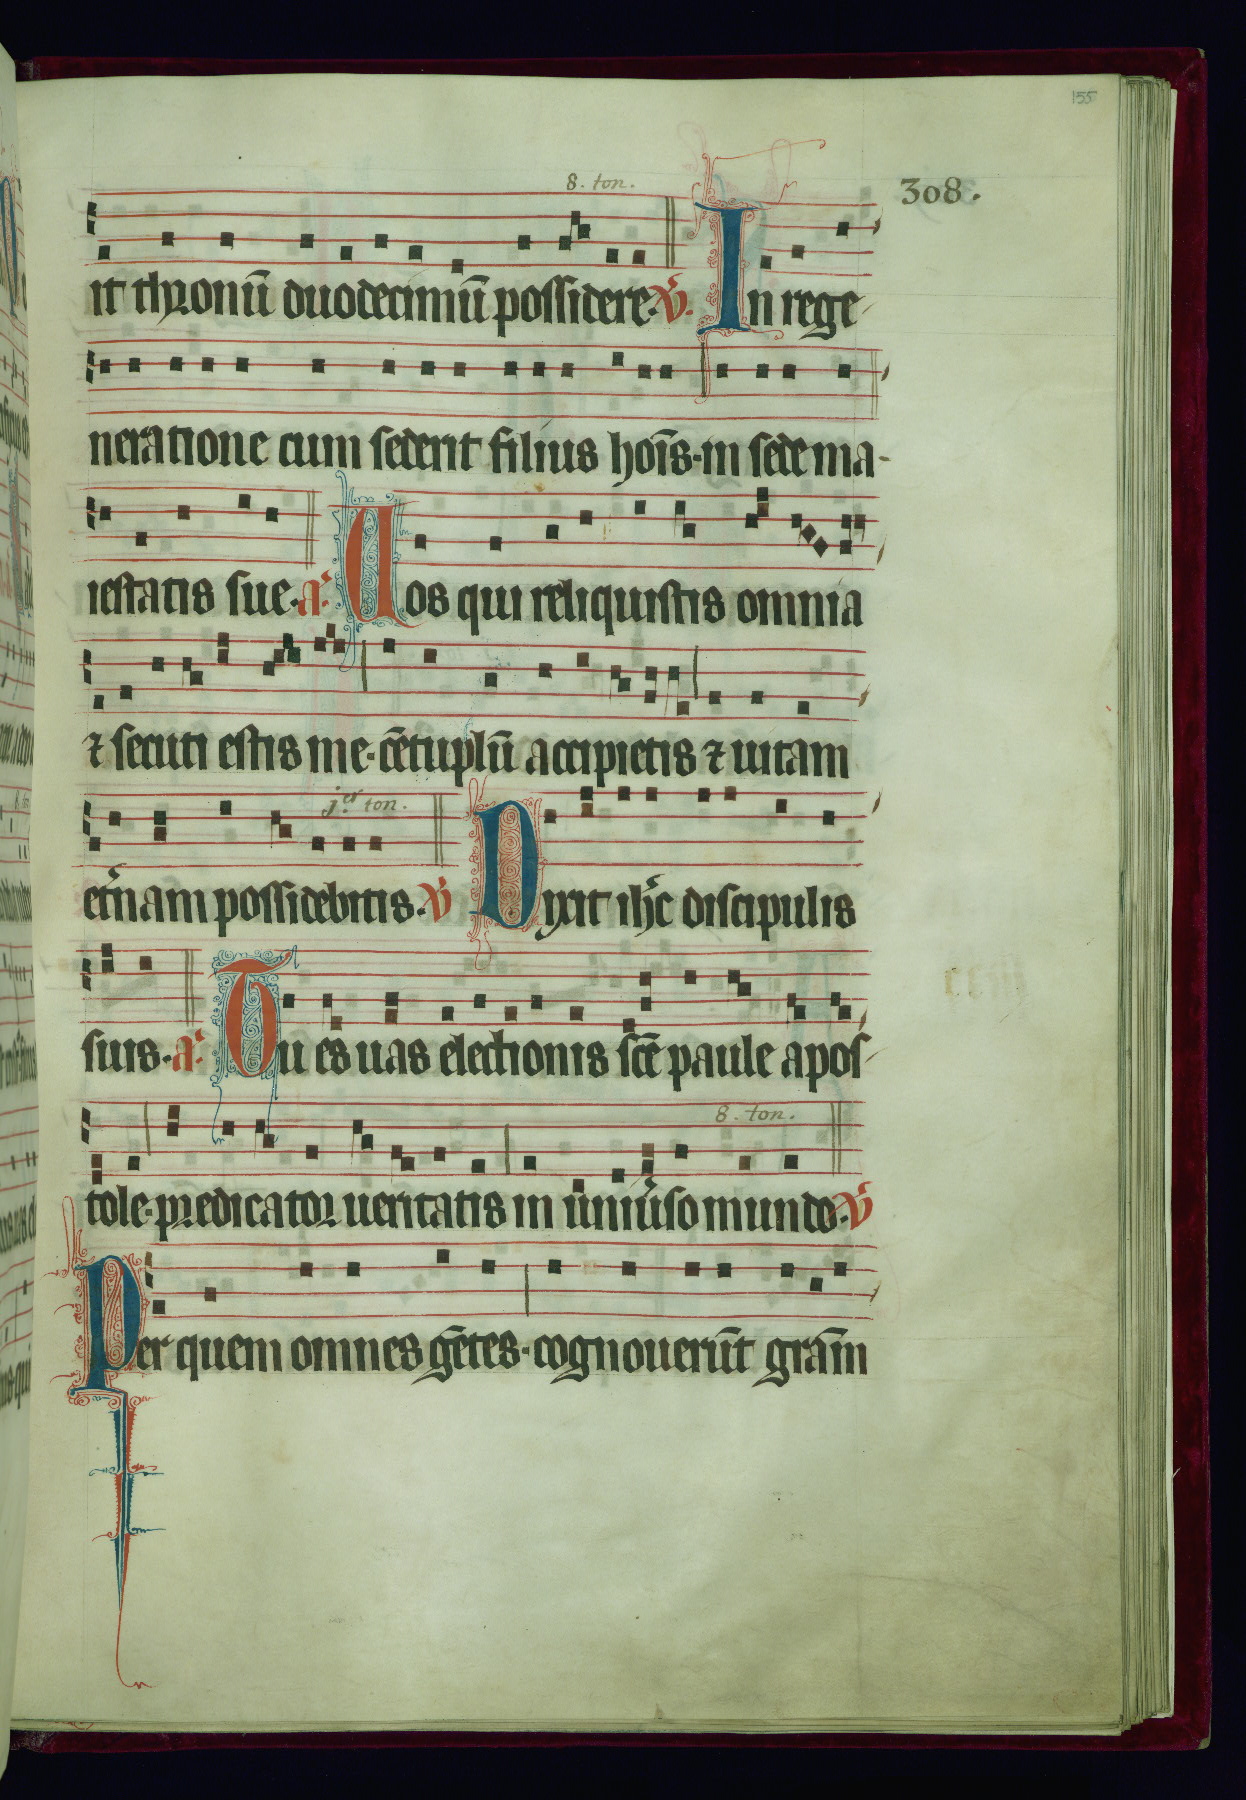 155
8. ton.
308.
it thronū duodecimū possidere. v̄. In rege
neratione cum sederit filius hoīs. in sede ma-
iestatis sue. a. Uos qui reliquistis omnia
⁊ secuti estis me. cētuplū accipietis ⁊ uitam
j.er ton.
et̄nam possidebitis. v̄ Dixit ih̄c discipulis
suis. a. Tu es uas electionis sc̄e paule apos
8. ton.
tole. predicator ueritatis in uniūso mundo. v̄
Per quem omnes gētes. cognouerūt grām